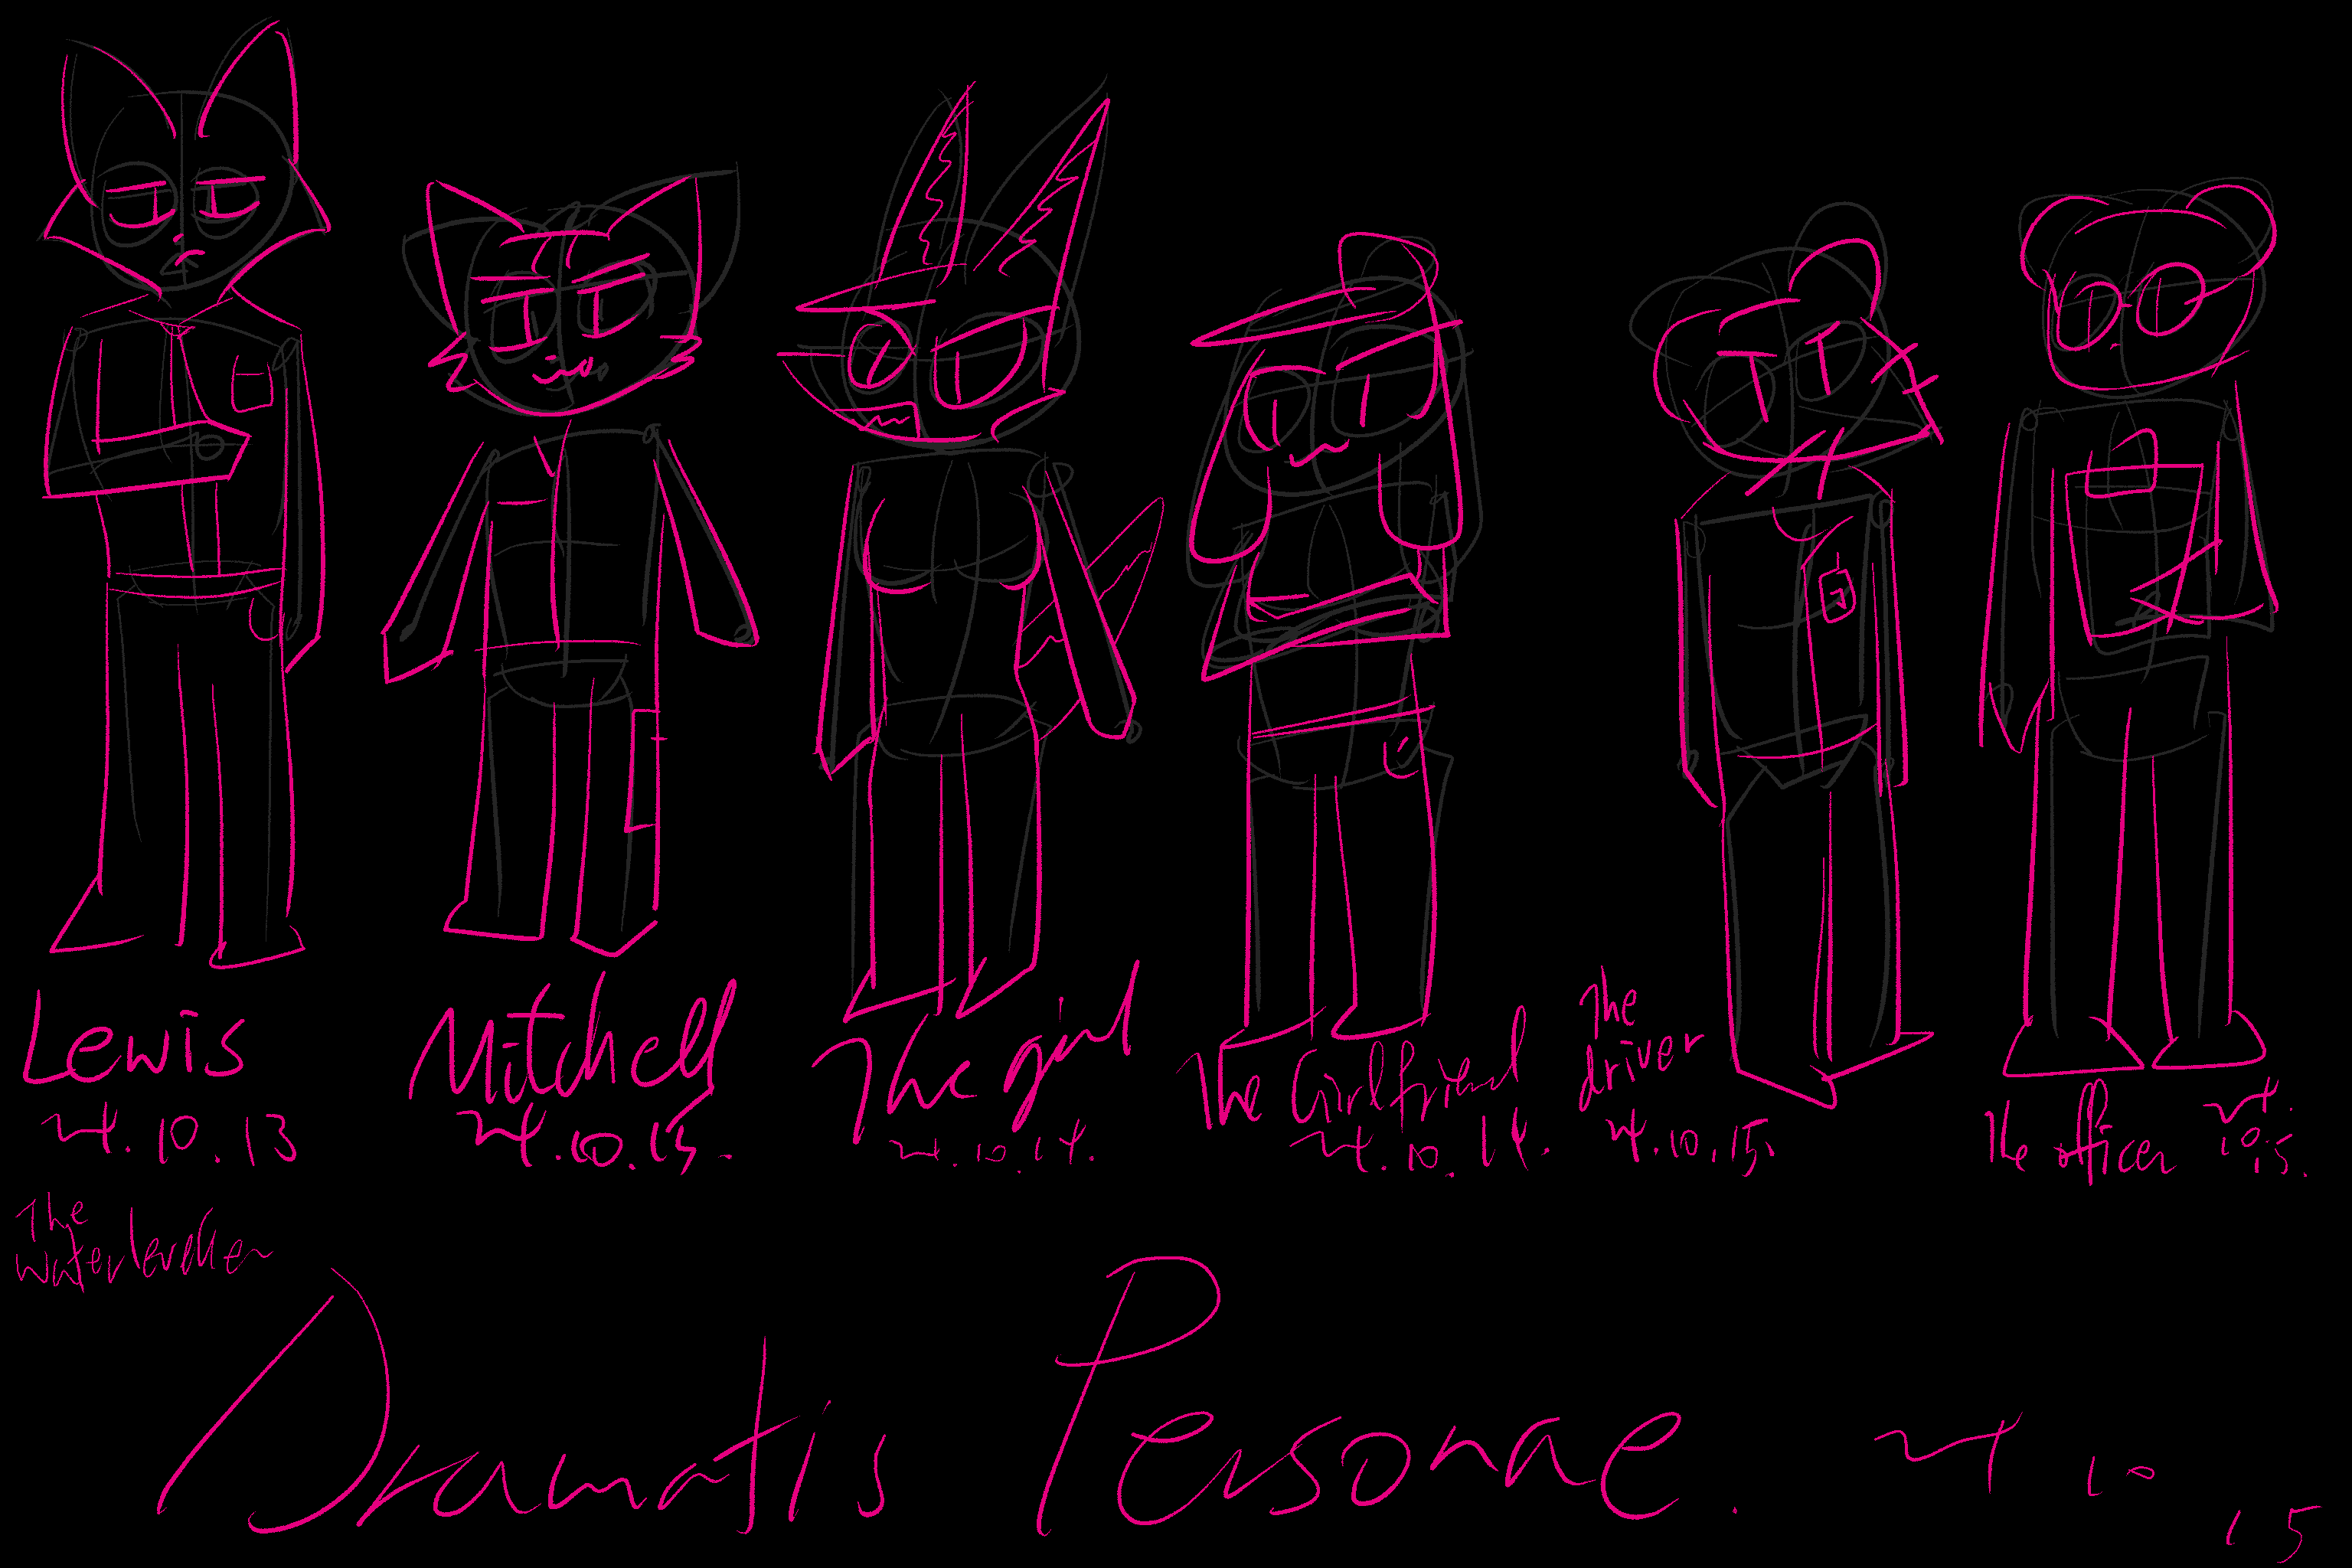 Lewis
24.10.13
Mitchell
24.10.15.
The girl
24.10.14.
The Girlfriend
24.10.14.
The
driver
24.10.15.
The officer
24.
10.
15.
The
Waterleveller
Dramatis Personae. 24
10
15